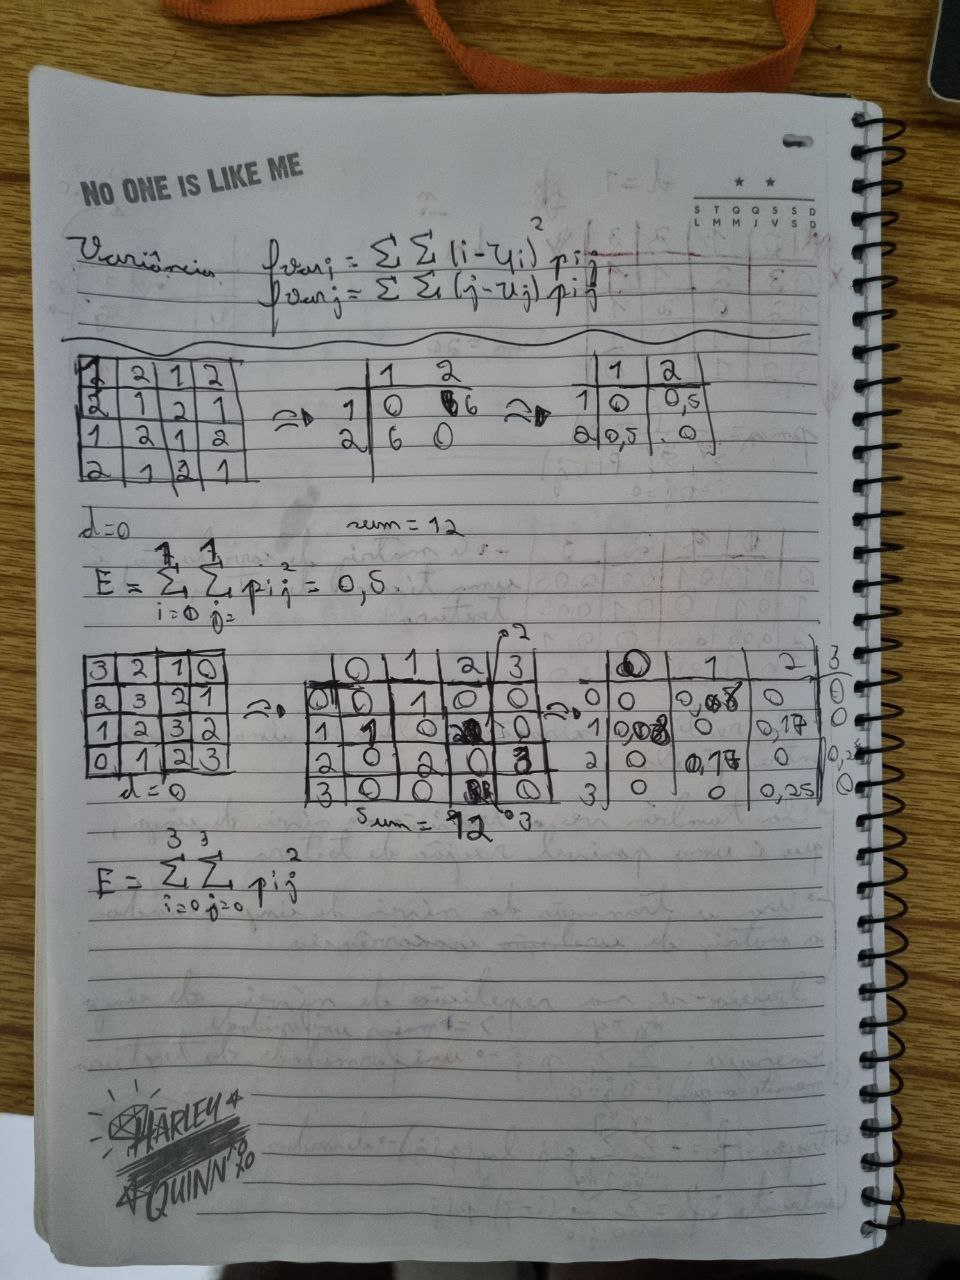 NO ONE IS LIKE ME
★ ★
S T Q Q S S D
L M M J V S D
Variância fvari = Σ Σ (i - ui)² pij
fvarj = Σ Σ (j - uj) pij
1 2 1 2
2 1 2 1
1 2 1 2
2 1 2 1
1 2
1 0 6
2 6 0
1 2
1 0 0,5
2 0,5 0
d=0 sum = 12
1 1
E = Σ Σ pij² = 0,5
i=0 j=
3 2 1 0
2 3 2 1
1 2 3 2
0 1 2 3
d=0
2
0 1 2 3
0 0 1 0 0
1 1 0 0
2 0 2 0 3
3 0 0 0
3
sum = 12
0 1 2 3
0 0 0,08 0 0
1 0,08 0 0,17 0
2 0 0,17 0
3 0 0 0,25 0
3 3
E = Σ Σ pij²
i=0 j=0
HARLEY
QUINN
XO
XO